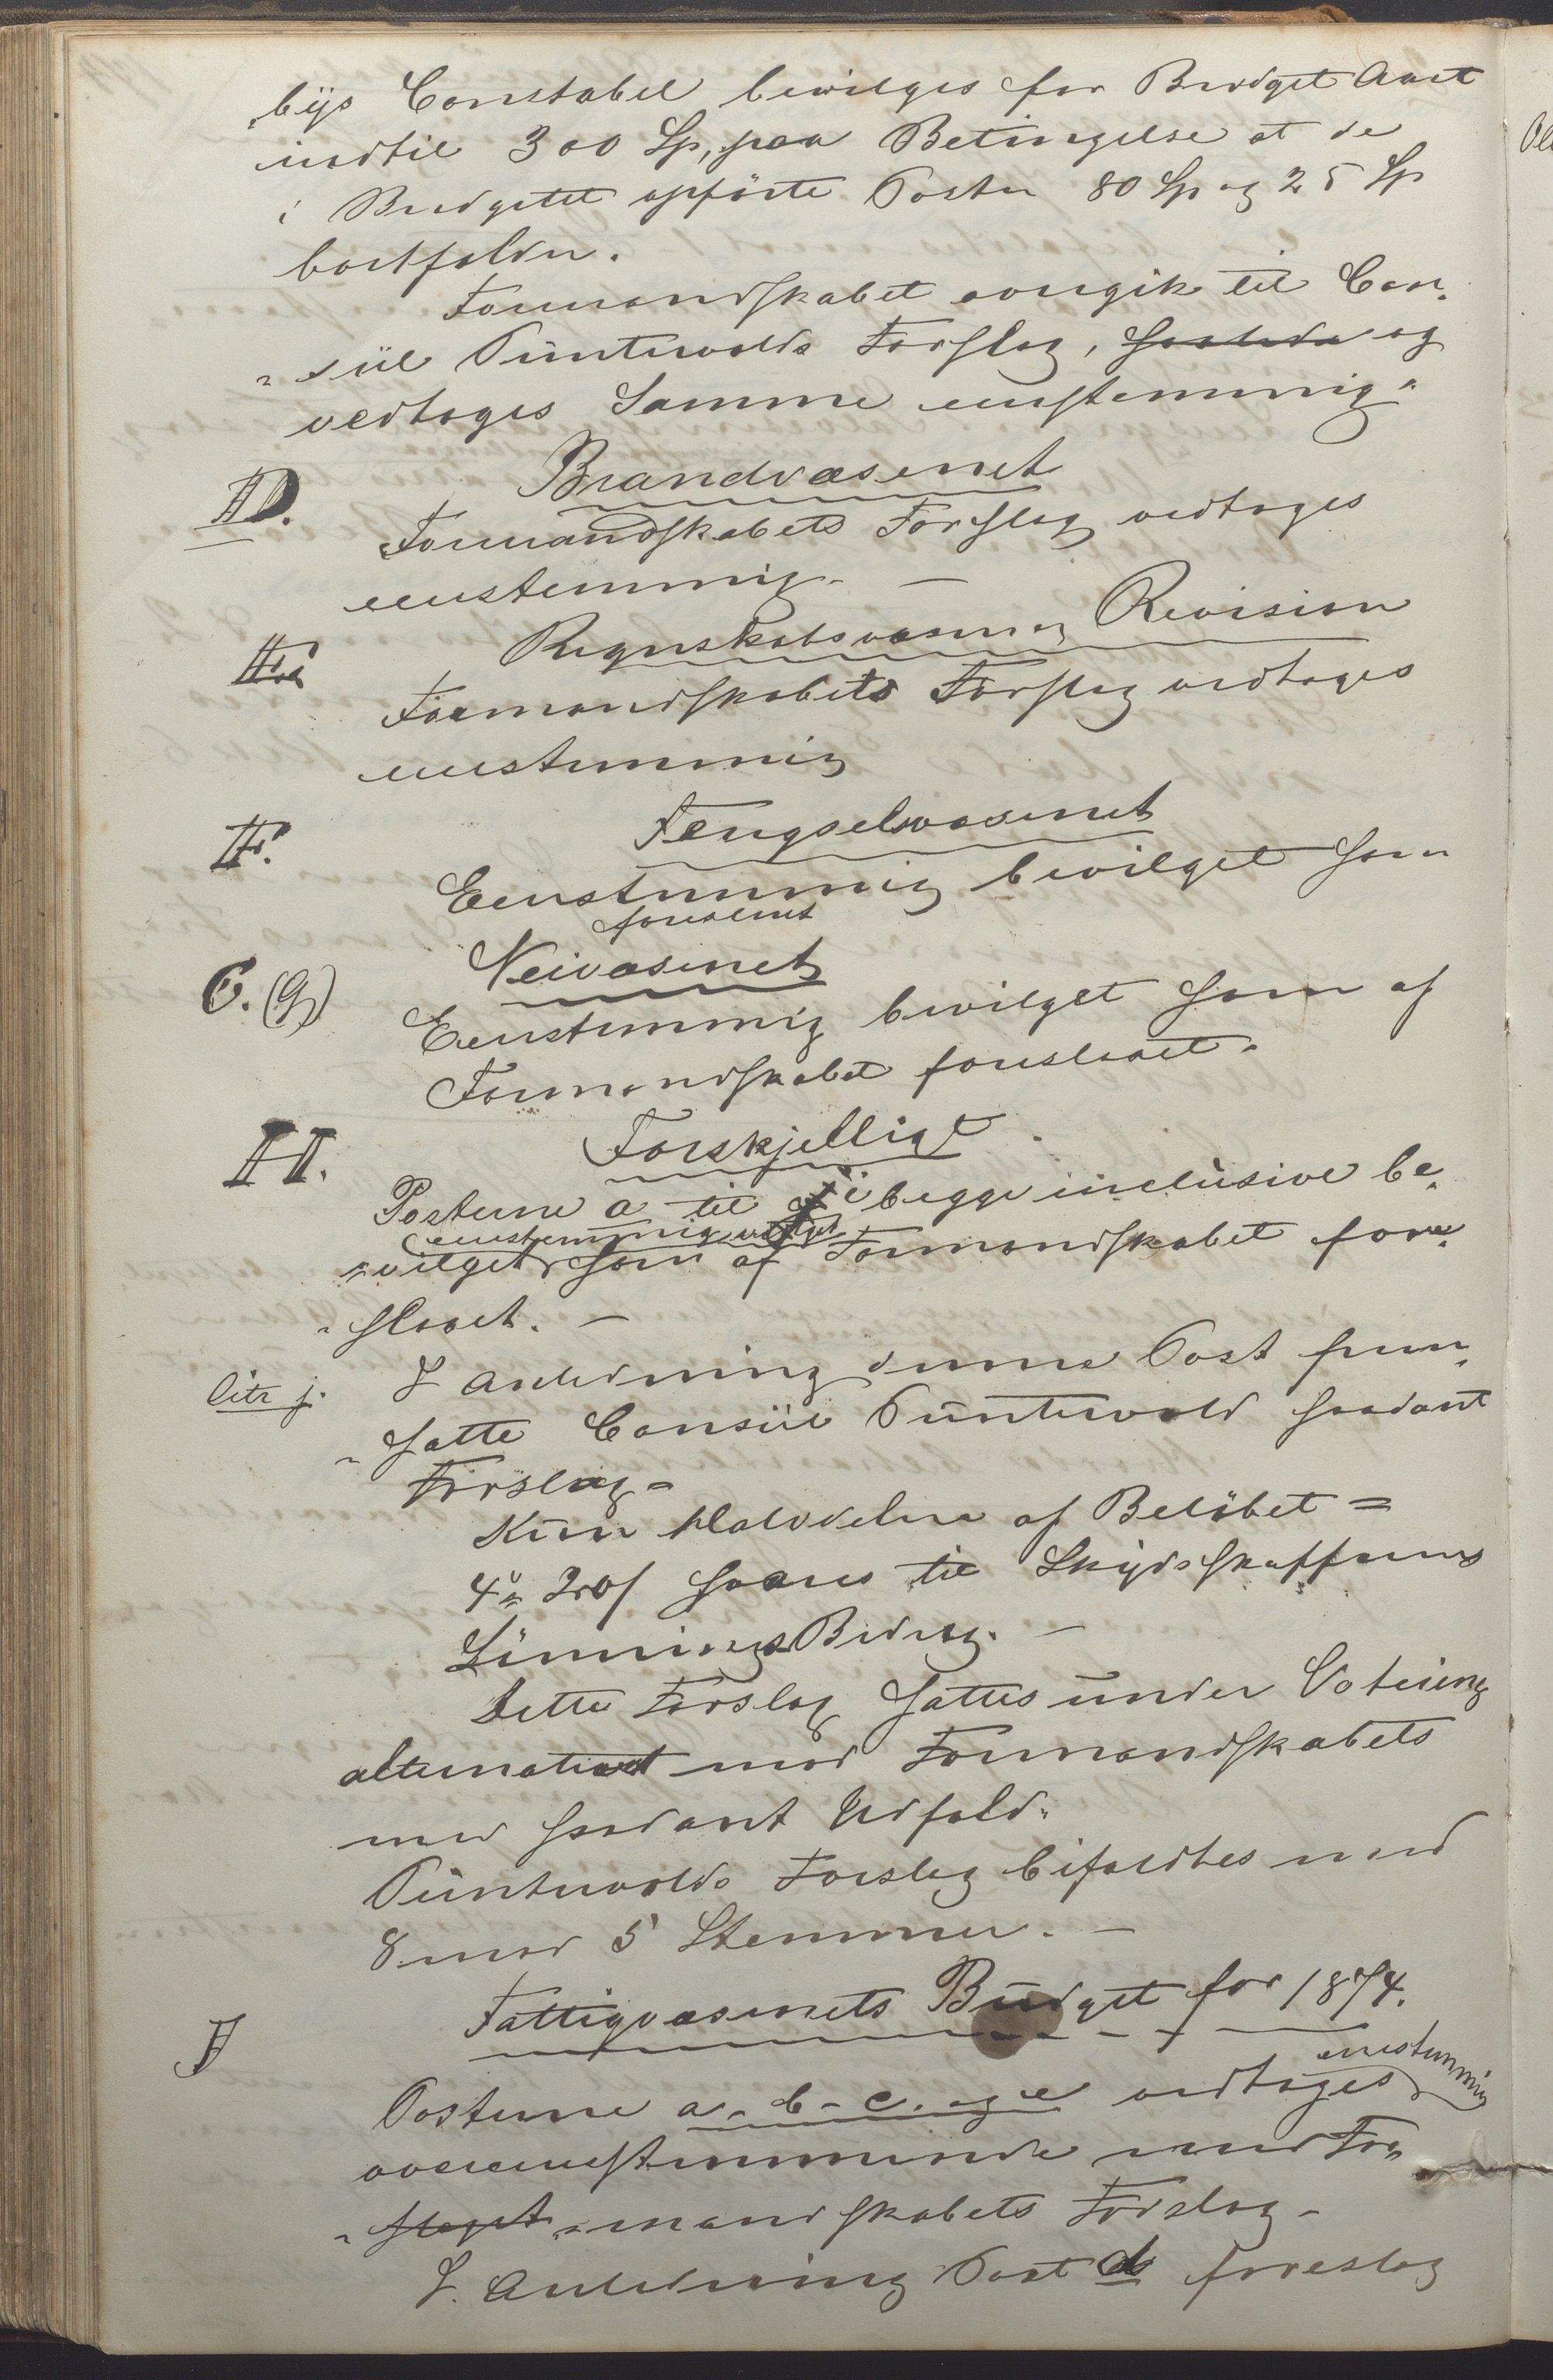 bys Constabel bevilges for Budget Aaret
indtil 300 Sp, paa Betingelse at de
i Budgettet opførte Poster 80 Sp og 25 Sp
bortfalder.
Formandskabet overgik til Con-
sül Püntervolds Forslag, saaledes og
vedtoges Samme eenstemmig.
D. Brandvæsenet
Formandskabets Forslag vedtoges
eenstemmig. —
E. Regnskabsvæsen og Revision
Formandskabets Forslag vedtoges
eenstemmig
F. Fengselsvæsenet
Eenstemmig bevilget som
foreslaaet
G. (G) Veivæsenet
Eenstemmig bevilget som af
Formandskabet foreslaaet.
H. Forskjelligt.
Posterne a til i begge inclusive be-
eenstemmig vedtaget
vilget som af Formandskabet fore-
slaaet. —
Litr j. I Anledning denne Post frem-
satte Consül Püntervold saadant
Forslag.
Kün Halvdelen af Beløbet =
4 Sp 20 s svares til Skydsskafferens
Lønnings Bidrag. —
Dette Forslag sattes ünder Votering
alternativt mod Formandskabets
med saadant Udfald.
Püntervolds Forslag bifaldtes med
8 mod 5 Stemmer. —
Fattigvæsenets Büdget for 1874.
I
eenstemmig
Posterne a. b. c. og e vedtoges
overeenstemmende med For-
slaget mandskabets Forslag.
I Anledning Post d foreslog